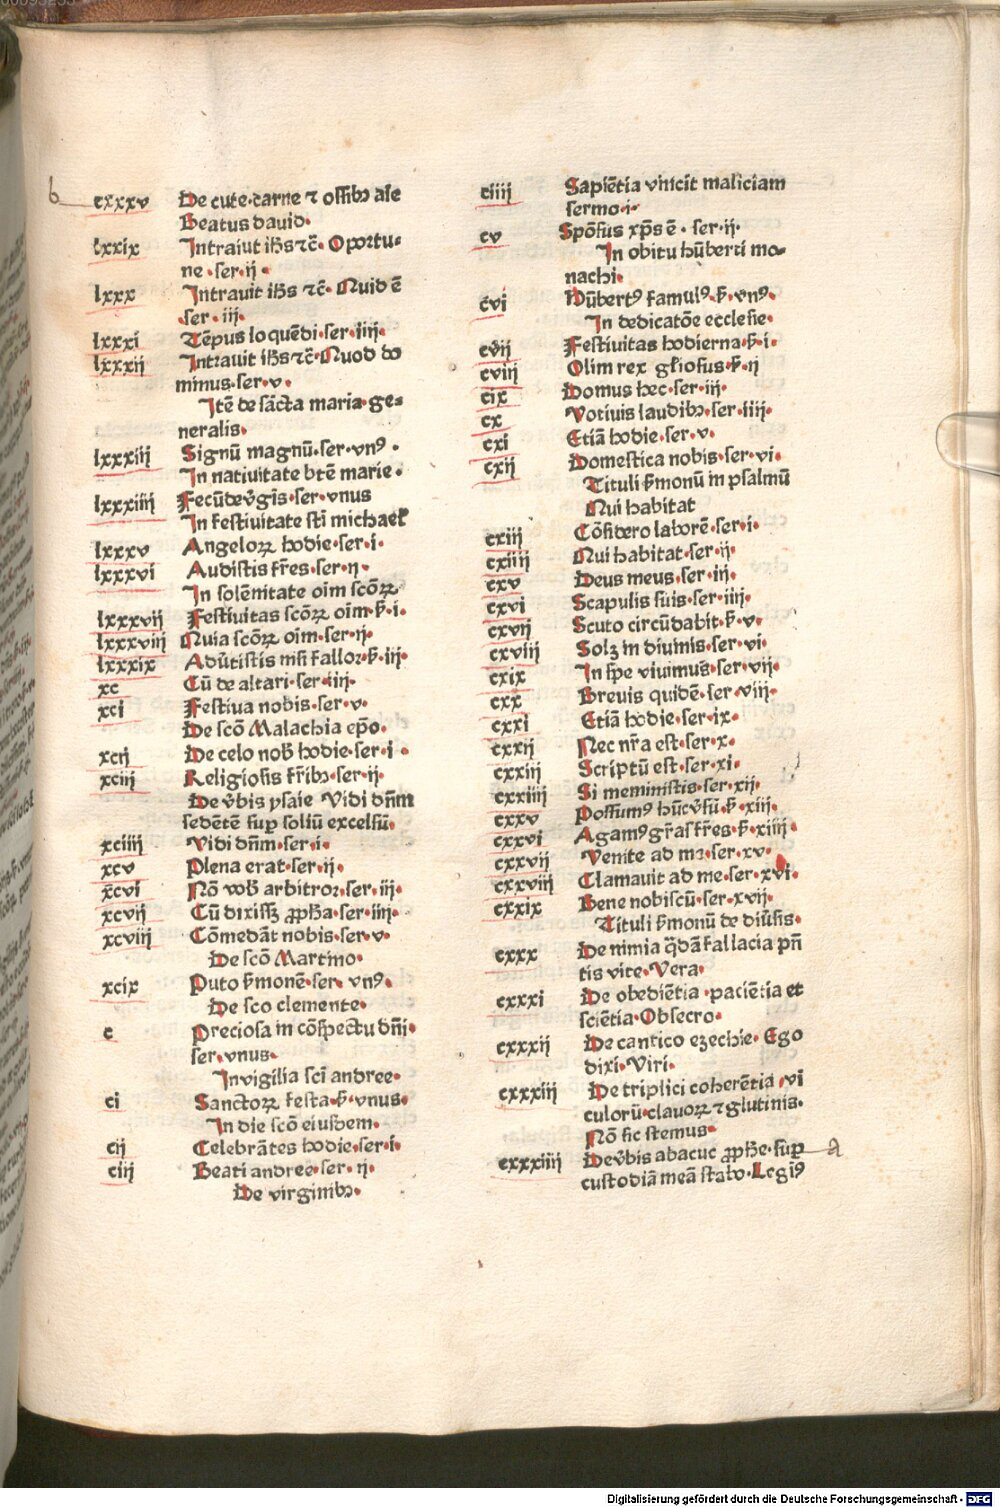 b
cxxxv De cute·carne ⁊ ossibꝫ aīe
Beatus dauid·
lxxix Intrauit ihs̄ ⁊c̄· Oportu-
ne ·ser·ij·
lxxx Intrauit ihs̄ ⁊c̄· Quid ē
·ser·iij·
lxxxi Tēpus loquēdi·ser·iiij·
lxxxij Intrauit ihs̄ ⁊c̄·Quod do
minus·ser·v·
Itē de sācta maria·ge-
neralis·
lxxxiij Signū magnū·ser·vnꝰ·
In natiuitate btē marie·
lxxxiiij Fecūde v̄gīs·ser·vnus
In festiuitate sti michael
lxxxv Angeloꝝ hodie·ser·i·
lxxxvi Audistis fr̄es·ser·ij·
In solēnitate oīm scōꝝ
lxxxvij Festiuitas scōꝝ oīm·ẜ·i·
lxxxviij Quia scōꝝ oīm·ser·ij·
lxxxix Adūtistis nisi fallor·ẜ·iij·
xc Cū de altari·ser·iiij·
xci Festiua nobis·ser·v·
De scō Malachia ep̄o·
xcij De celo nob̄ hodie·ser·i·
xciij Religiosis fr̄ibꝫ·ser·ij·
De v̄bis ysaie Vidi dn̄m
sedētē suꝑ soliū excelsū·
xciiij Vidi dn̄m·ser·i·
xcv Plena erat·ser·ij·
xcvi Nō vob̄ arbitror·ser·iij·
xcvij Cū dixissꝫ ꝓph̄a·ser·iiij·
xcviij Cōmedāt nobis·ser·v·
De scō Martino·
xcix Puto ẜmonē·ser·vnꝰ·
De sco clemente·
c Preciosa in cōspectu dn̄i·
ser·vnus·
In vigilia sci andree·
ci Sanctoꝝ festa·ẜ·vnus·
In die scō eiusdem·
cij Celebrātes hodie·ser·i·
ciij Beati andree·ser·ij·
De virginibꝫ·
ciiij Sapiētia vincit maliciam
sermo·i·
cv Spōsus xp̄s ē·ser·ij·
In obitu hūberti mo-
nachi·
cvi Hūbertꝰ famulꝰ·ẜ·vnꝰ·
In dedicatōe ecclesie·
cvij Festiuitas hodierna·ẜ·i·
cviij Olim rex gl̄iosus·ẜ·ij
cix Domus hec·ser·iij·
cx Votiuis laudibꝫ·ser·iiij·
cxi Etiā hodie·ser·v·
cxij Domestica nobis·ser·vi·
Tituli ẜmonū in psalmū
Qui habitat
cxiij Cōsidero laborē·ser·i·
cxiiij Qui habitat·ser·ij·
cxv Deus meus·ser·iij·
cxvi Scapulis suis·ser·iiij·
cxvij Scuto circūdabit·ẜ·v·
cxviij Solꝫ in diuinis·ser·vi·
cxix In spe viuimus·ser·vij·
cxx Brevis quidē·ser·viij·
cxxi Etiā hodie·ser·ix·
cxxij Nec nr̄a est·ser·x·
cxxiij Scriptū est·ser·xi·
cxxiiij Si meministis·ser·xij·
cxxv Possumꝰ hūc v̄sū·ẜ·xiij·
cxxvi Agamꝰ gr̄as fr̄es·ẜ·xiiij·
cxxvij Venite ad me·ser·xv·
cxxviij Clamauit ad me·ser·xvi·
cxxix Bene nobiscū·ser·xvij·
Tituli ẜmonū de diūsis·
cxxx De nimia q̄dā fallacia pn̄
tis vite·Vera·
cxxxi De obediētia·paciētia et
sciētia·Obsecro·
cxxxij De cantico ezechie·Ego
dixi·Viri·
cxxxiij De triplici coherētia·vi
culorū·clauoꝝ ⁊ glutinis·
Nō sic stemus·
cxxxiiij De v̄bis abacuc ꝓph̄e·suꝑ a
custodiā meā stabo·Legiꝰ
Digitalisierung gefördert durch die Deutsche Forschungsgemeinschaft - DFG